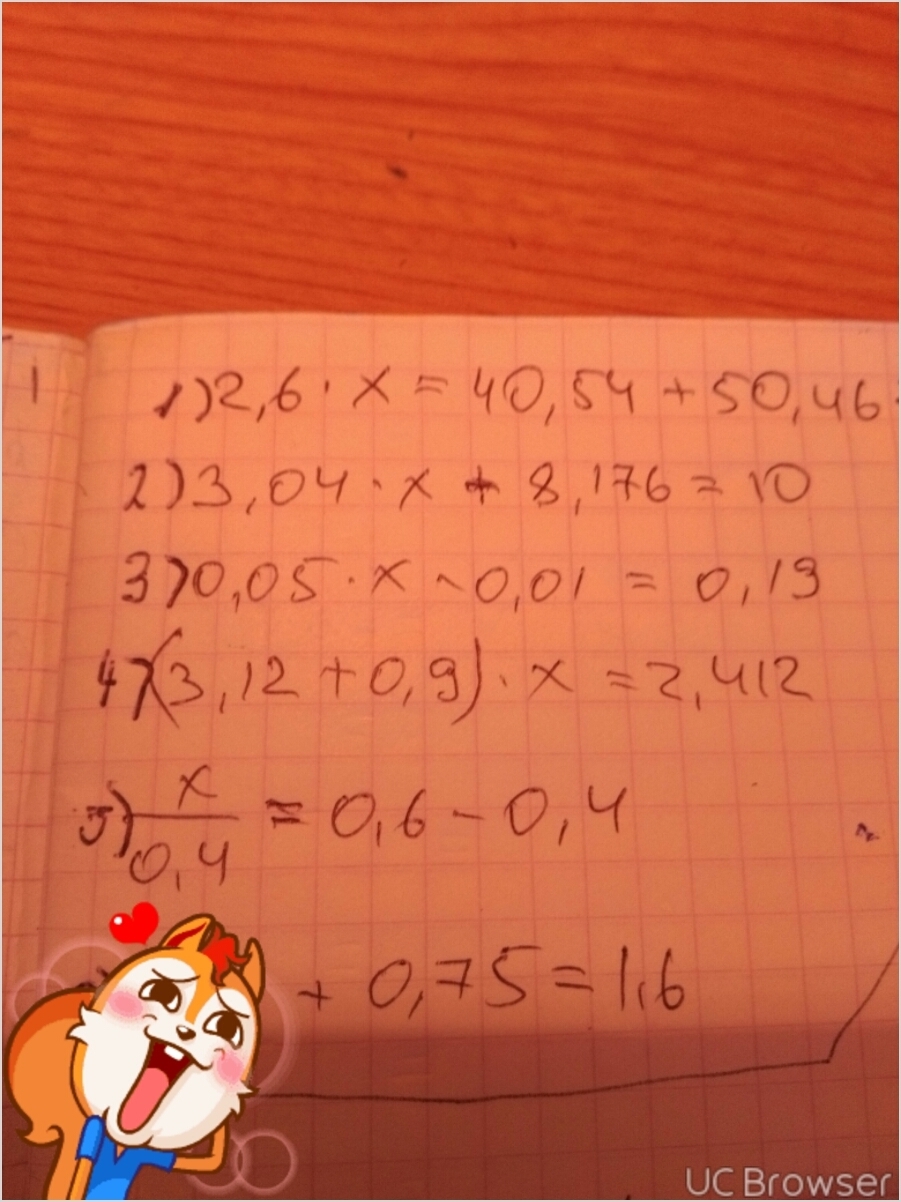 1
1) 2,6 · x = 40,54 + 50,46
2) 3,04 · x + 8,176 = 10
3) 0,05 · x - 0,01 = 0,19
4) (3,12 + 0,9) · x = 2,412
5) x/0,4 = 0,6 - 0,4
+ 0,75 = 1,6
UC Browser